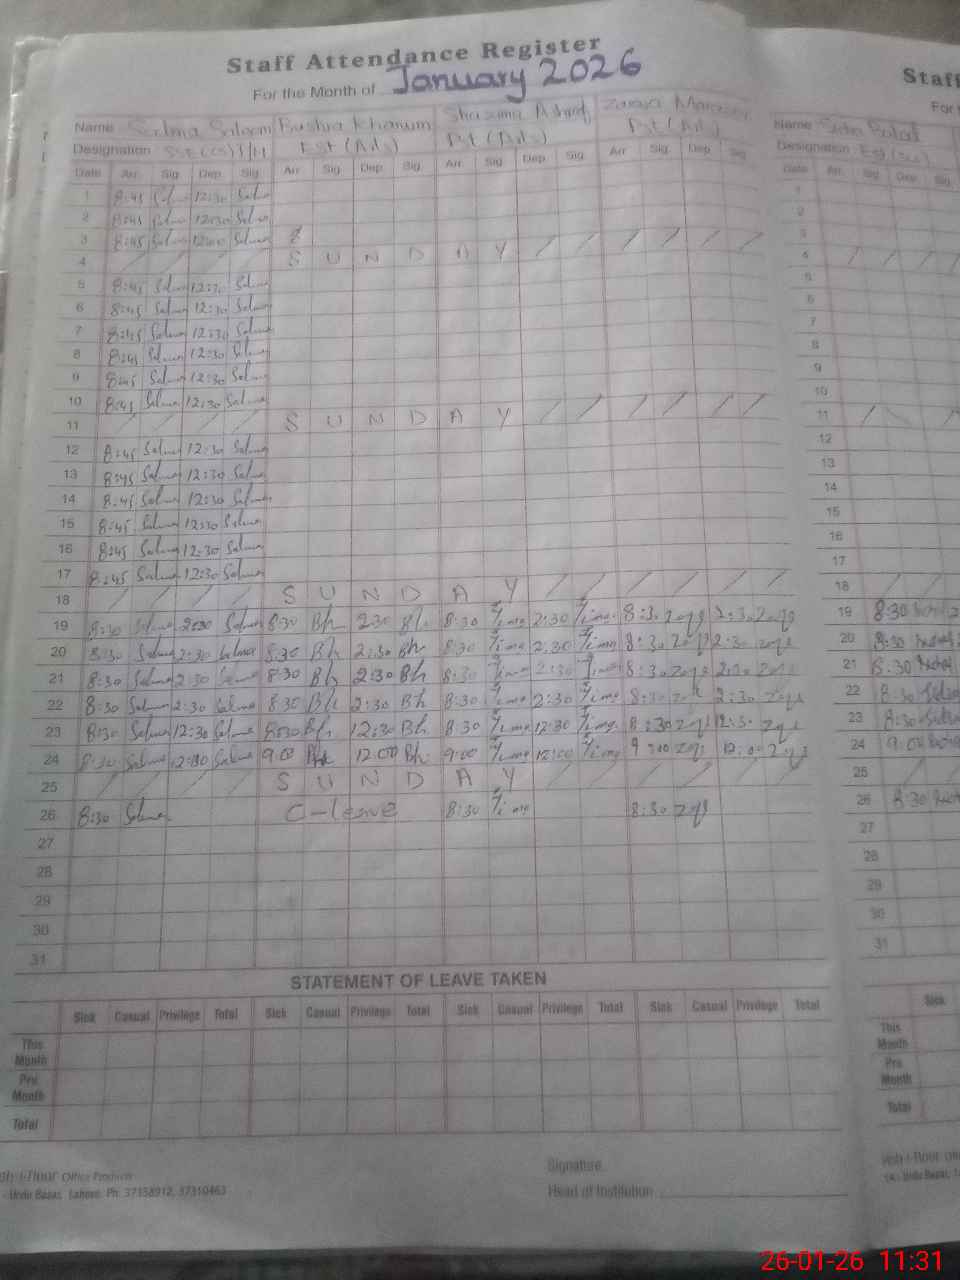 Staff Attendance Register
For the Month of January 2026
Name Salma Saleem Bushra Khanum Shazima Ashraf
Designation SSE(CS) I/H EST (Arts) PST (Arts) PST (Arts)
Date Arr. Sig. Dep. Sig. Arr. Sig. Dep. Sig. Arr. Sig. Dep. Sig. Arr. Sig. Dep. Sig.
1 8:45 Salma 12:30 Salma
2 8:45 Salma 12:30 Salma
3 8:45 Salma 12:00 Salma
4 S U N D A Y
5 8:45 Salma 12:30 Salma
6 8:45 Salma 12:30 Salma
7 8:45 Salma 12:30 Salma
8 8:45 Salma 12:30 Salma
9 8:45 Salma 12:30 Salma
10 8:45 Salma 12:30 Salma
11 S U N D A Y
12 8:45 Salma 12:30 Salma
13 8:45 Salma 12:30 Salma
14 8:45 Salma 12:30 Salma
15 8:45 Salma 12:30 Salma
16 8:45 Salma 12:30 Salma
17 8:45 Salma 12:30 Salma
18 S U N D A Y
19 8:30 Salma 2:30 Salma 8:30 Bh 2:30 Bh 8:30 2:30 8:30 2:30
20 8:30 Salma 2:30 Salma 8:30 Bh 2:30 Bh 8:30 2:30 8:30 2:30
21 8:30 Salma 2:30 Salma 8:30 Bh 2:30 Bh 8:30 2:30 8:30 2:30
22 8:30 Salma 2:30 Salma 8:30 Bh 2:30 Bh 8:30 2:30 8:30 2:30
23 8:30 Salma 12:30 Salma 8:30 Bh 12:30 Bh 8:30 12:30 8:30 12:30
24 8:30 Salma 12:00 Salma 9:00 Bh 12:00 Bh 9:00 12:00 9:00 12:00
25 S U N D A Y
26 8:30 Salma C-leave 8:30 8:30
27
28
29
30
31
STATEMENT OF LEAVE TAKEN
Sick Casual Privilege Total Sick Casual Privilege Total Sick Casual Privilege Total Sick Casual Privilege Total
This Month
Pre Month
Total
Signature
Head of Institution
Office Products
Urdu Bazar, Lahore. Ph: 37158912, 37310463
Staff
For
Name
Designation
Date Arr. Sig. Dep. Sig.
1
2
3
4
5
6
7
8
9
10
11
12
13
14
15
16
17
18
19 8:30
20 8:30
21 8:30
22 8:30
23 8:30
24 9:00
25
26 8:30
27
28
29
30
31
Sick
This Month
Pre Month
Total
Urdu Bazar,
26-01-26 11:31